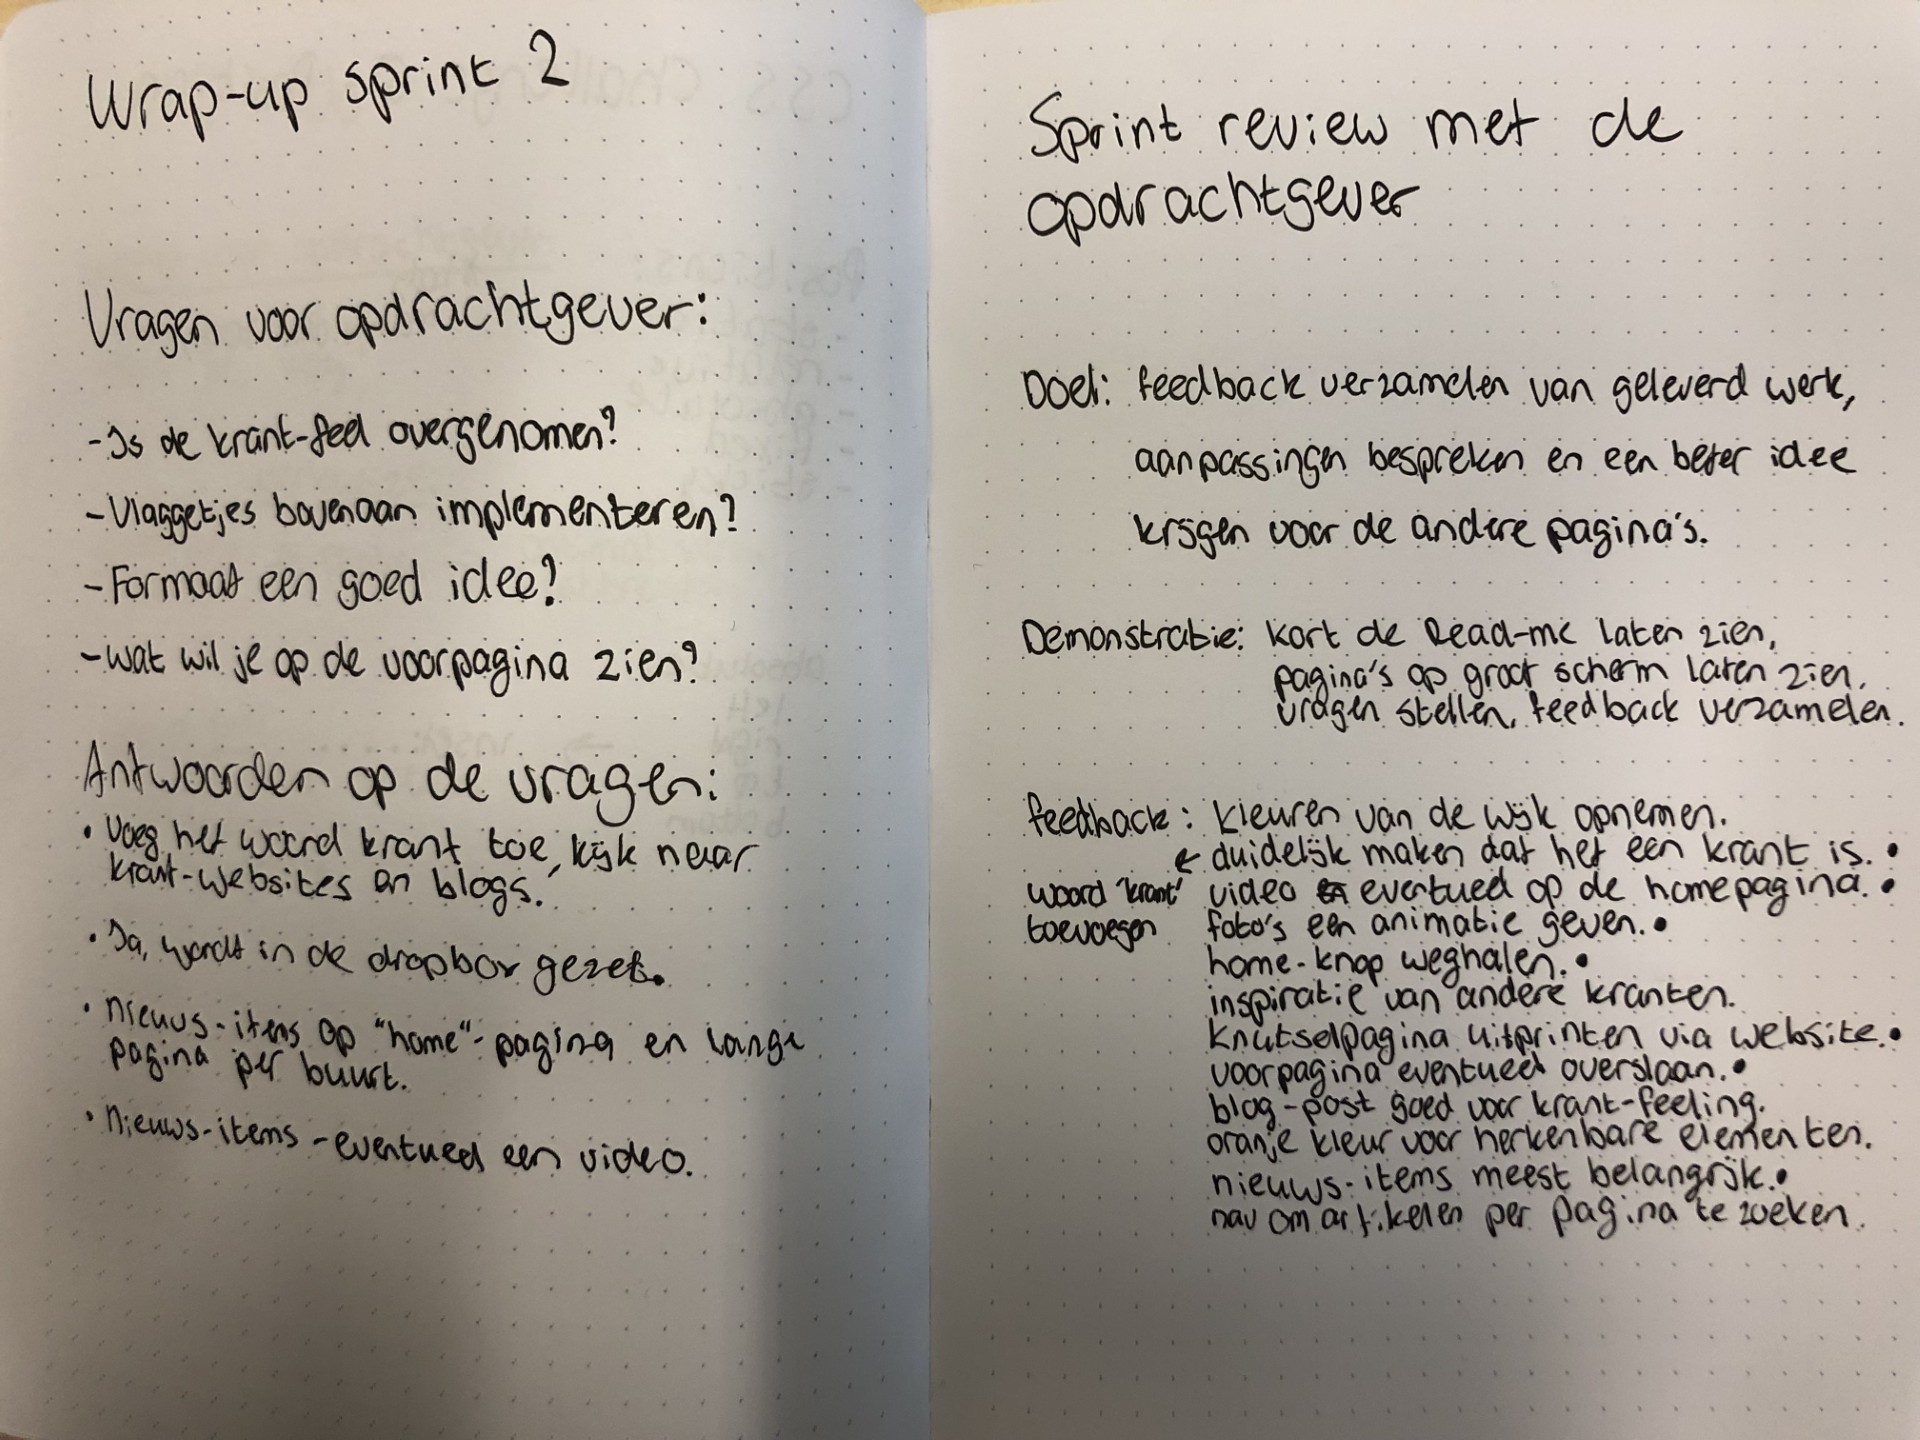 Wrap-up sprint 2
Vragen voor opdrachtgever:
- Is de krant-feel overgenomen?
- Vlaggetjes bovenaan implementeren?
- Formaat een goed idee?
- wat wil je op de voorpagina zien?
Antwoorden op de vragen:
• Voeg het woord krant toe, kijk naar
krant-websites en blogs.
• Ja, wordt in de dropbox gezet.
• nieuws-items op "home"-pagina en lange
pagina per buurt.
• nieuws-items - eventueel een video.
Sprint review met de
opdrachtgever
Doel: feedback verzamelen van geleverd werk,
aanpassingen bespreken en een beter idee
krijgen voor de andere pagina's.
Demonstratie: kort de Read-me laten zien,
pagina's op groot scherm laten zien,
vragen stellen, feedback verzamelen.
feedback: kleuren van de wijk opnemen.
← duidelijk maken dat het een krant is. •
woord 'krant' video eventueel op de homepagina. •
toevoegen foto's een animatie geven. •
home-knop weghalen. •
inspiratie van andere kranten.
knutselpagina uitprinten via website. •
voorpagina eventueel overslaan. •
blog-post goed voor krant-feeling.
oranje kleur voor herkenbare elementen.
nieuws-items meest belangrijk. •
nav om artikelen per pagina te zoeken.